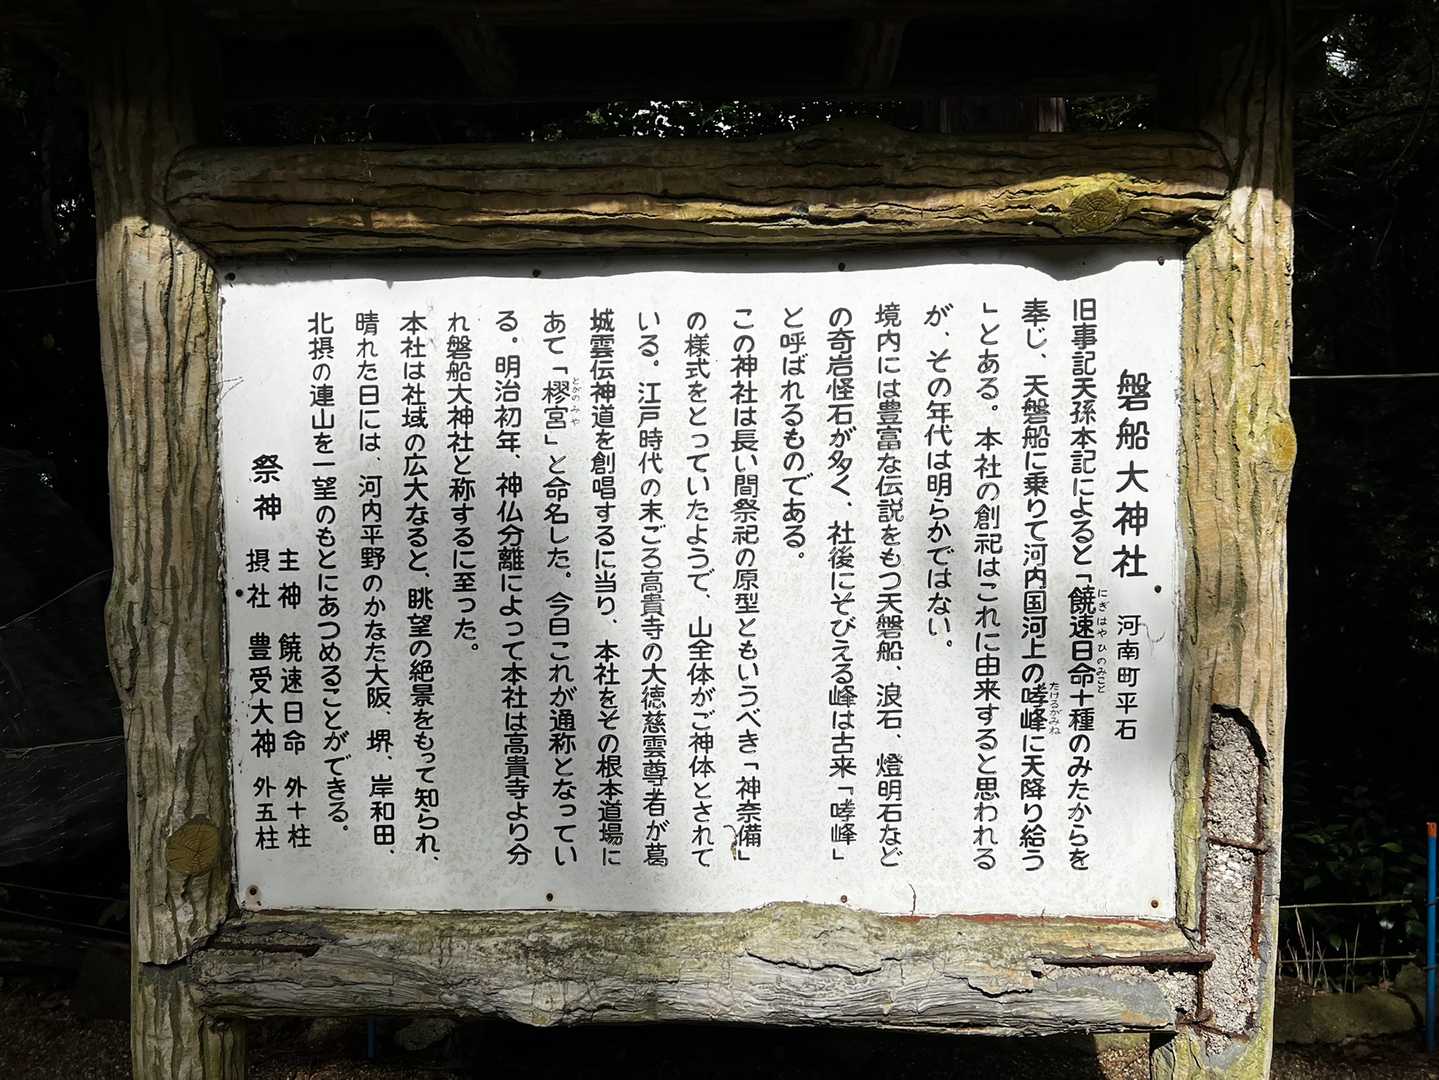 磐船大神社 河南町平石
旧事記天孫本記によると「饒速日命十種のみたからを
にぎはやひのみこと
奉じ、天磐船に乗りて河内国河上の哮峰に天降り給う
たけるがみね
」とある。本社の創祀はこれに由来すると思われる
が、その年代は明らかではない。
境内には豊富な伝説をもつ天磐船、浪石、燈明石など
の奇岩怪石が多く、社後にそびえる峰は古来「哮峰」
と呼ばれるものである。
この神社は長い間祭祀の原型ともいうべき「神奈備」
の様式をとっていたようで、山全体がご神体とされて
いる。江戸時代の末ごろ高貴寺の大徳慈雲尊者が葛
城雲伝神道を創唱するに当り、本社をその根本道場に
あて「樛宮」と命名した。今日これが通称となってい
とがのみや
る。明治初年、神仏分離によって本社は高貴寺より分
れ磐船大神社と称するに至った。
本社は社域の広大なると、眺望の絶景をもって知られ、
晴れた日には、河内平野のかなた大阪、堺、岸和田、
北摂の連山を一望のもとにあつめることができる。
祭神 主神 饒速日命 外十柱
摂社 豊受大神 外五柱